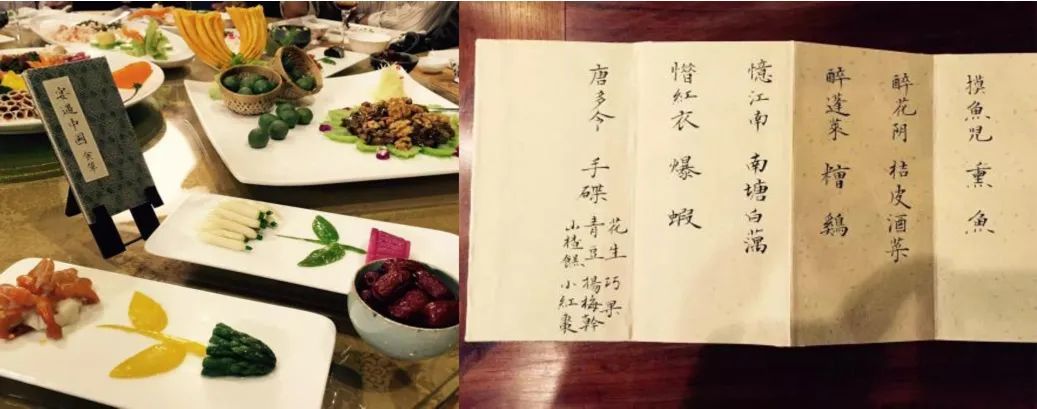 宋遇中国 食單
摸魚兒 熏魚
醉花阴 桔皮酒菜
醉蓬萊 糟鷄
憶江南 南塘白藕
惜紅衣 爆蝦
唐多令 手碟
花生 巧果
青豆 揚梅幹
小楂餻 小紅棗